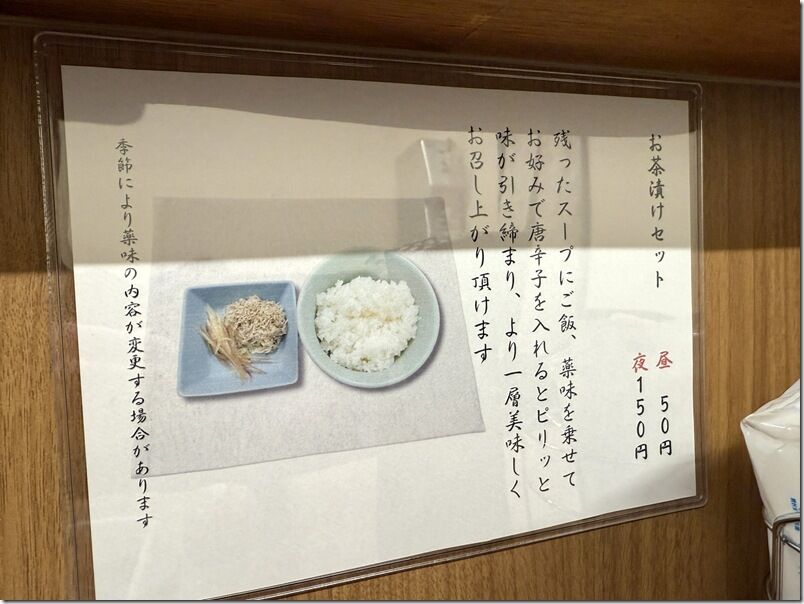 お茶漬けセット
昼 50円
夜 150円
残ったスープにご飯、薬味を乗せて
お好みで唐辛子を入れるとピリッと
味が引き締まり、より一層美味しく
お召し上がり頂けます
季節により薬味の内容が変更する場合があります